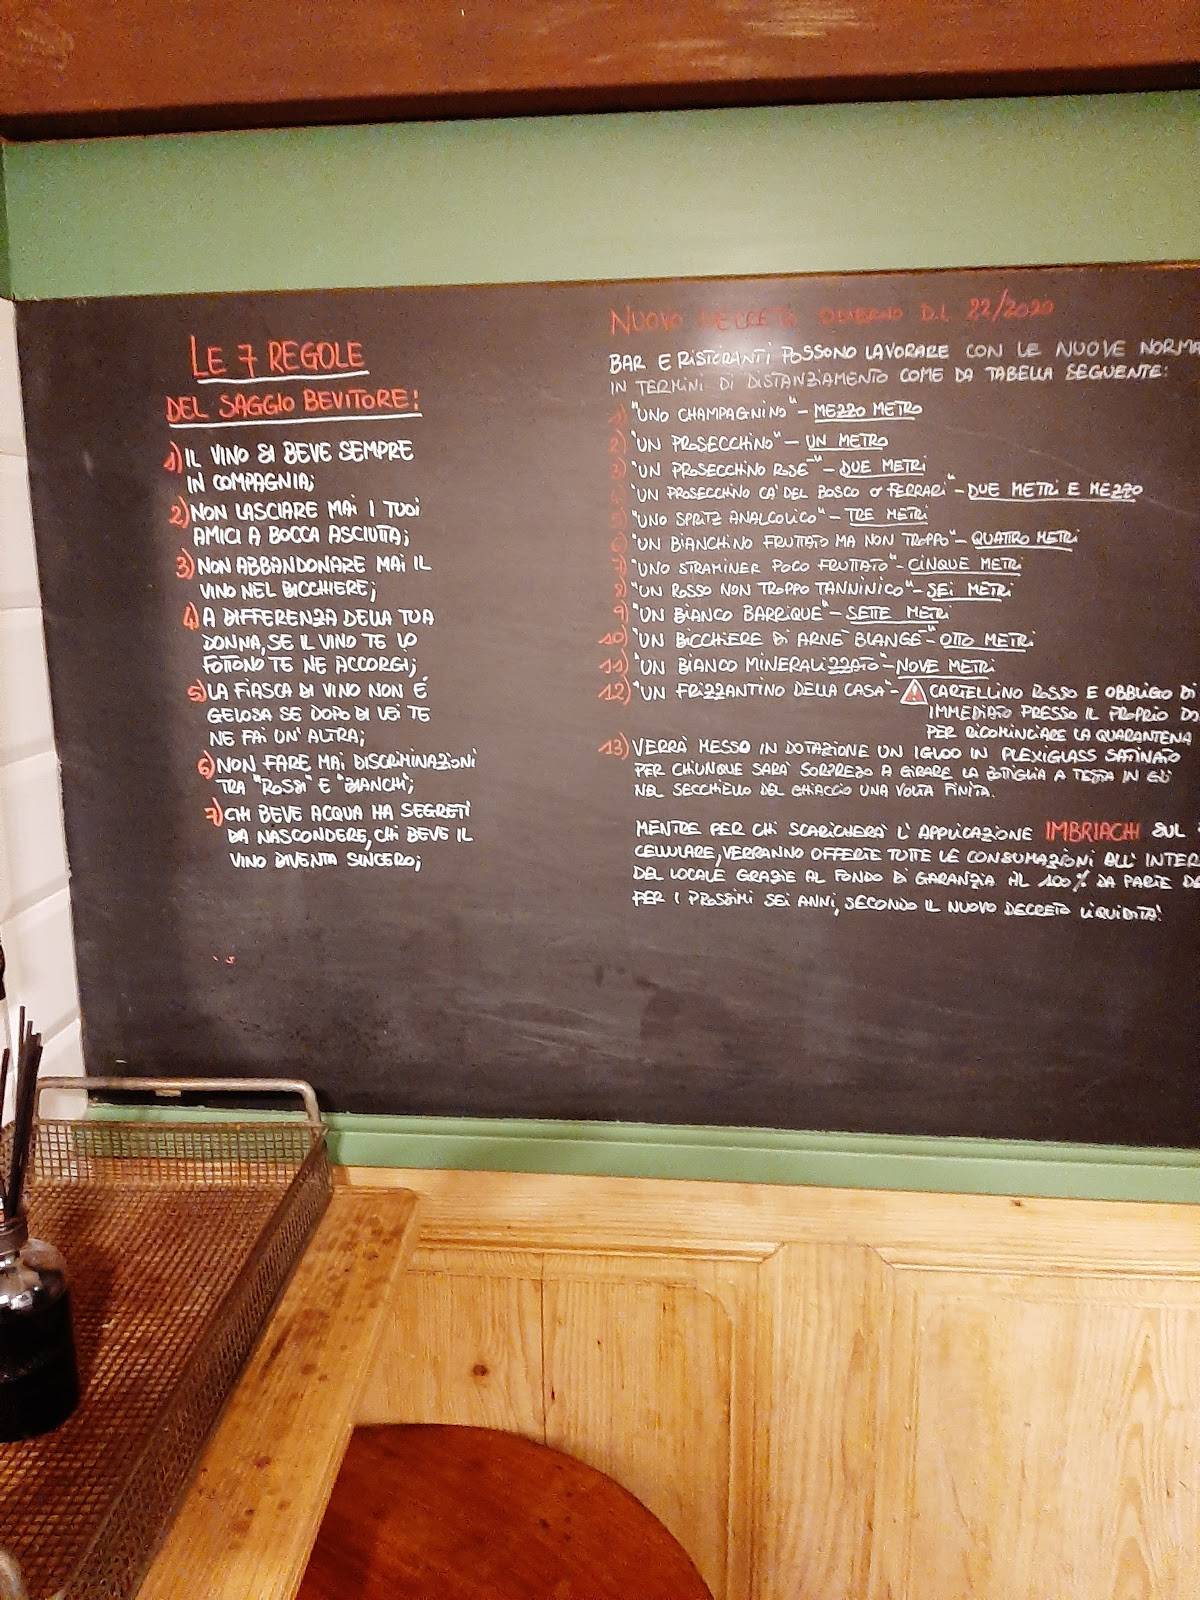 LE 7 REGOLE
DEL SAGGIO BEVITORE:
1) IL VINO SI BEVE SEMPRE
IN COMPAGNIA;
2) NON LASCIARE MAI I TUOI
AMICI A BOCCA ASCIUTTA;
3) NON ABBANDONARE MAI IL
VINO NEL BICCHIERE;
4) A DIFFERENZA DELLA TUA
DONNA, SE IL VINO TE LO
FOTTONO TE NE ACCORGI;
5) LA FIASCA DI VINO NON É
GELOSA SE DOPO DI LEI TE
NE FAI UN' ALTRA;
6) NON FARE MAI DISCRIMINAZIONI
TRA "ROSSI" E "BIANCHI";
7) CHI BEVE ACQUA HA SEGRETI
DA NASCONDERE, CHI BEVE IL
VINO DIVENTA SINCERO;
NUOVO DECRETO D.L 22/2020
BAR E RISTORANTI POSSONO LAVORARE CON LE NUOVE NORMA
IN TERMINI DI DISTANZIAMENTO COME DA TABELLA SEGUENTE:
1) "UNO CHAMPAGNINO" - MEZZO METRO
2) "UN PROSECCHINO" - UN METRO
3) "UN PROSECCHINO ROSÈ" - DUE METRI
"UN PROSECCHINO CA' DEL BOSCO O FERRARI" - DUE METRI E MEZZO
5) "UNO SPRITZ ANALCOLICO" - TRE METRI
6) "UN BIANCHINO FRUTTATO MA NON TROPPO" - QUATTRO METRI
7) "UNO STRAMINER POCO FRUTTATO" - CINQUE METRI
8) "UN ROSSO NON TROPPO TANNINICO" - SEI METRI
9) "UN BIANCO BARRIQUE" - SETTE METRI
10) "UN BICCHIERE DI ARNÉ BLANGÉ" - OTTO METRI
11) "UN BIANCO MINERALIZZATO" - NOVE METRI
12) "UN FRIZZANTINO DELLA CASA" - CARTELLINO ROSSO E OBBLIGO DI
IMMEDIATO PRESSO IL PROPRIO DO
PER RICOMINCIARE LA QUARANTENA
13) VERRÀ MESSO IN DOTAZIONE UN IGLOO IN PLEXIGLASS SATINATO
PER CHIUNQUE SARÀ SORPRESO A GIRARE LA BOTTIGLIA A TESTA IN GIÙ
NEL SECCHIELLO DEL GHIACCIO UNA VOLTA FINITA.
MENTRE PER CHI SCARICHERÀ L' APPLICAZIONE IMBRIACHI SUL
CELLULARE, VERRANNO OFFERTE TUTTE LE CONSUMAZIONI ALL' INTER
DEL LOCALE GRAZIE AL FONDO DI GARANZIA AL 100% DA PARTE DE
PER I PROSSIMI SEI ANNI, SECONDO IL NUOVO DECRETO LIQUIDITÀ!